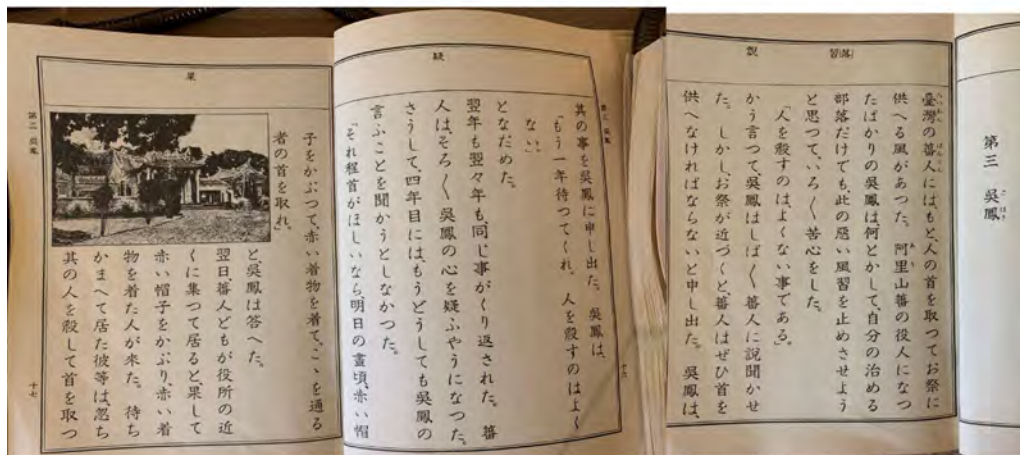 第三 吳鳳
臺灣の蕃人には、もと、人の首を取つてお祭に
供へる風があつた。阿里山蕃の役人になつ
たばかりの吳鳳は、何とかして、自分の治める
部落だけでも、此の惡い風習を止めさせよう
と思つて、いろ〱苦心をした。
「人を殺すのはよくない事である。」
かう言つて、吳鳳はしば〱蕃人に說聞かせ
た。しかし、お祭が近づくと、蕃人はぜひ首を
供へなければならないと申し出た。吳鳳は、
習(落)
說
其の事を吳鳳に申し出た。吳鳳は、
「もう一年待つてくれ。人を殺すのはよく
ない。」
となだめた。
翌年も翌々年も、同じ事がくり返された。蕃
人は、そろ〱吳鳳の心を疑ふやうになつた。
さうして、四年目には、もうどうしても吳鳳の
言ふことを聞かうとしなかつた。
「それ程首がほしいなら、明日の晝頃、赤い帽
疑
第三 吳鳳
十六
子をかぶつて、赤い着物を着て、こゝを通る
者の首を取れ。」
と、吳鳳は答へた。
翌日蕃人どもが役所の近
くに集つて居ると、果して
赤い帽子をかぶり、赤い着
物を着た人が來た。待ち
かまへて居た彼等は、忽ち
其の人を殺して首を取つ
果
第三 吳鳳
十七